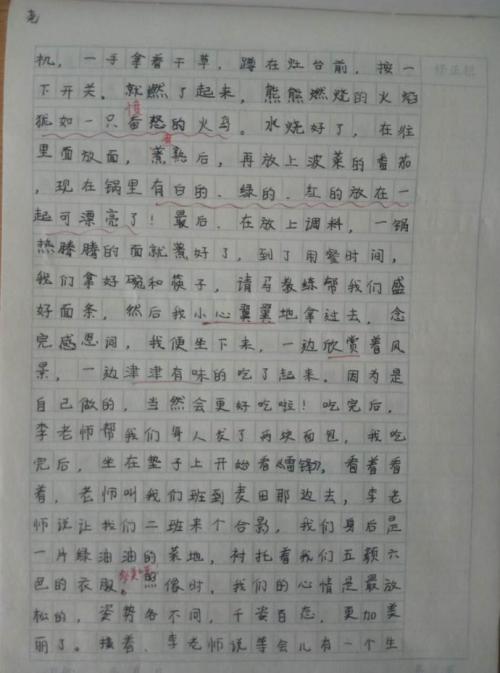 亮
机，一手拿着干草，蹲在灶台前，按一
下开关。就燃了起来，熊熊燃烧的火焰
愤
犹如一只奋怒的火马。水烧好了，在往
里面放面，煮熟后，再放上波菜的番茄
，现在锅里有白的、绿的、红的放在一
起可漂亮了！最后、在放上调料，一锅
热腾腾的面就煮好了，到了用餐时间，
我们拿好碗和筷子，请马教练帮我们盛
好面条，然后我小心翼翼地拿过去，念
完感恩词，我便坐下来，一边欣赏着风
景，一边津津有味的吃了起来。因为是
自己做的，当然会更好吃啦！吃完后，
李老师帮我们每人发了两块面包，我吃
完后，坐在垫子上开始看《雷锋》，看着看
着，老师叫我们班到麦田那边去，李老
师说让我们二班来个合影，我们身后是
一片绿油油的菜地，衬托着我们五颗六
色的衣服。照像时，我们的心情是最放
松的，姿势各不同，千姿百态，更加美
丽了。接着、李老师说等会儿有一个生